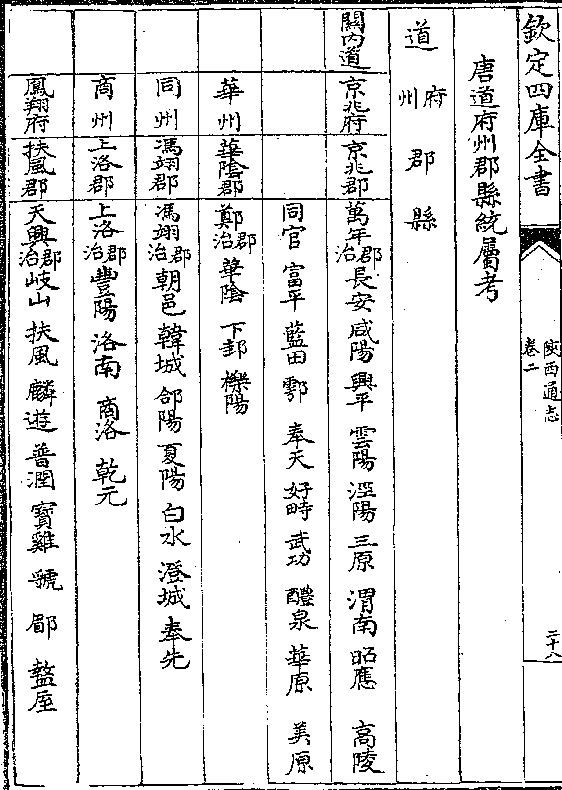 欽定四庫全書
陜西通志
卷二
二十八
唐道府州郡縣統屬考
道 府州 郡 縣
關內道 京兆府 京兆郡 萬年郡治 長安 咸陽 興平 雲陽 涇陽 三原 渭南 昭應 高陵
同官 富平 藍田 鄠 奉天 好畤 武功 醴泉 華原 美原
華州 華陰郡 鄭郡治 華陰 下邽 櫟陽
同州 馮翊郡 馮翊郡治 朝邑 韓城 郃陽 夏陽 白水 澄城 奉先
商州 上洛郡 上洛郡治 豐陽 洛南 商洛 乾元
鳳翔府 扶風郡 天興郡治 岐山 扶風 麟遊 普潤 寶雞 虢 郿 盩厔